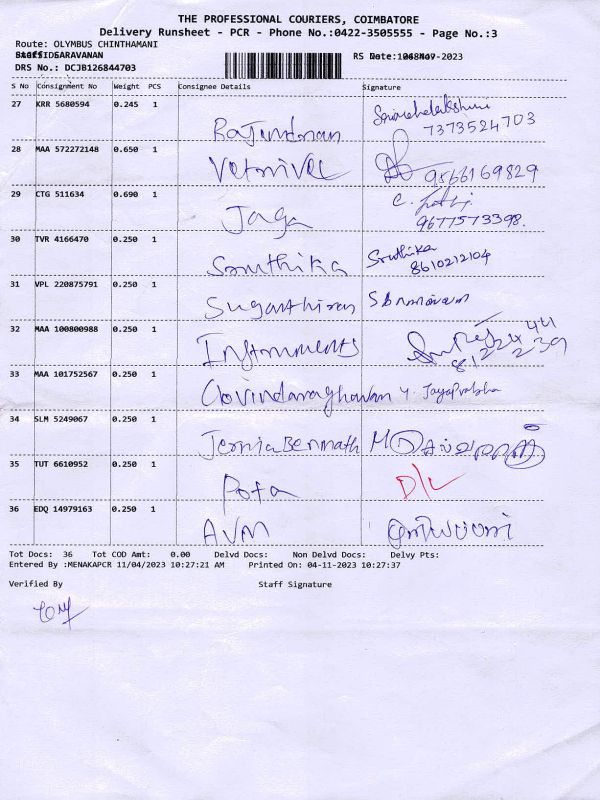 THE PROFESSIONAL COURIERS, COIMBATORE
Delivery Runsheet - PCR - Phone No.:0422-3505555 - Page No.:3
Route: OLYMBUS CHINTHAMANI
SARAVANAN RS 2023
DRS No.: DCJB126844703
S No Consignment No Weight PCS Consignee Details Signature
27 KRR 5680594 0.245 1
Rajendran 7373524703
28 MAA 572272148 0.650 1
Vetrivel 9566169829
29 CTG 511634 0.690 1
Jaga 9677573398.
30 TVR 4166470 0.250 1
Sruthika Sruthika 8610212104
31 VPL 220875791 0.250 1
Suganthiran
32 MAA 100800988 0.250 1
Instruments
33 MAA 101752567 0.250 1
Govindaraghavan Y. JayaPrabha
34 SLM 5249067 0.250 1
35 TUT 6610952 0.250 1
D/L
36 EDQ 14979163 0.250 1
AVM
Tot Docs: 36 Tot COD Amt: 0.00 Delvd Docs: Non Delvd Docs: Delvy Pts:
Entered By :MENAKAPCR 11/04/2023 10:27:21 AM Printed On: 04-11-2023 10:27:37
Verified By Staff Signature